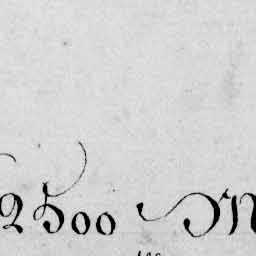 2500 M